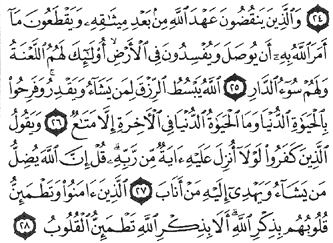 ٢٤ وَالَّذِينَ يَنقُضُونَ عَهْدَ اللَّهِ مِن بَعْدِ مِيثَاقِهِ وَيَقْطَعُونَ مَا
أَمَرَ اللَّهُ بِهِ أَن يُوصَلَ وَيُفْسِدُونَ فِي الْأَرْضِ أُولَٰئِكَ لَهُمُ اللَّعْنَةُ
وَلَهُمْ سُوءُ الدَّارِ ٢٥ اللَّهُ يَبْسُطُ الرِّزْقَ لِمَن يَشَاءُ وَيَقْدِرُ وَفَرِحُوا
بِالْحَيَوٰةِ الدُّنْيَا وَمَا الْحَيَوٰةُ الدُّنْيَا فِي الْآخِرَةِ إِلَّا مَتَٰعٌ ٢٦ وَيَقُولُ
الَّذِينَ كَفَرُوا لَوْلَا أُنزِلَ عَلَيْهِ ءَايَةٌ مِّن رَّبِّهِ قُلْ إِنَّ اللَّهَ يُضِلُّ
مَن يَشَاءُ وَيَهْدِي إِلَيْهِ مَنْ أَنَابَ ٢٧ الَّذِينَ ءَامَنُوا وَتَطْمَئِنُّ
قُلُوبُهُم بِذِكْرِ اللَّهِ أَلَا بِذِكْرِ اللَّهِ تَطْمَئِنُّ الْقُلُوبُ ٢٨